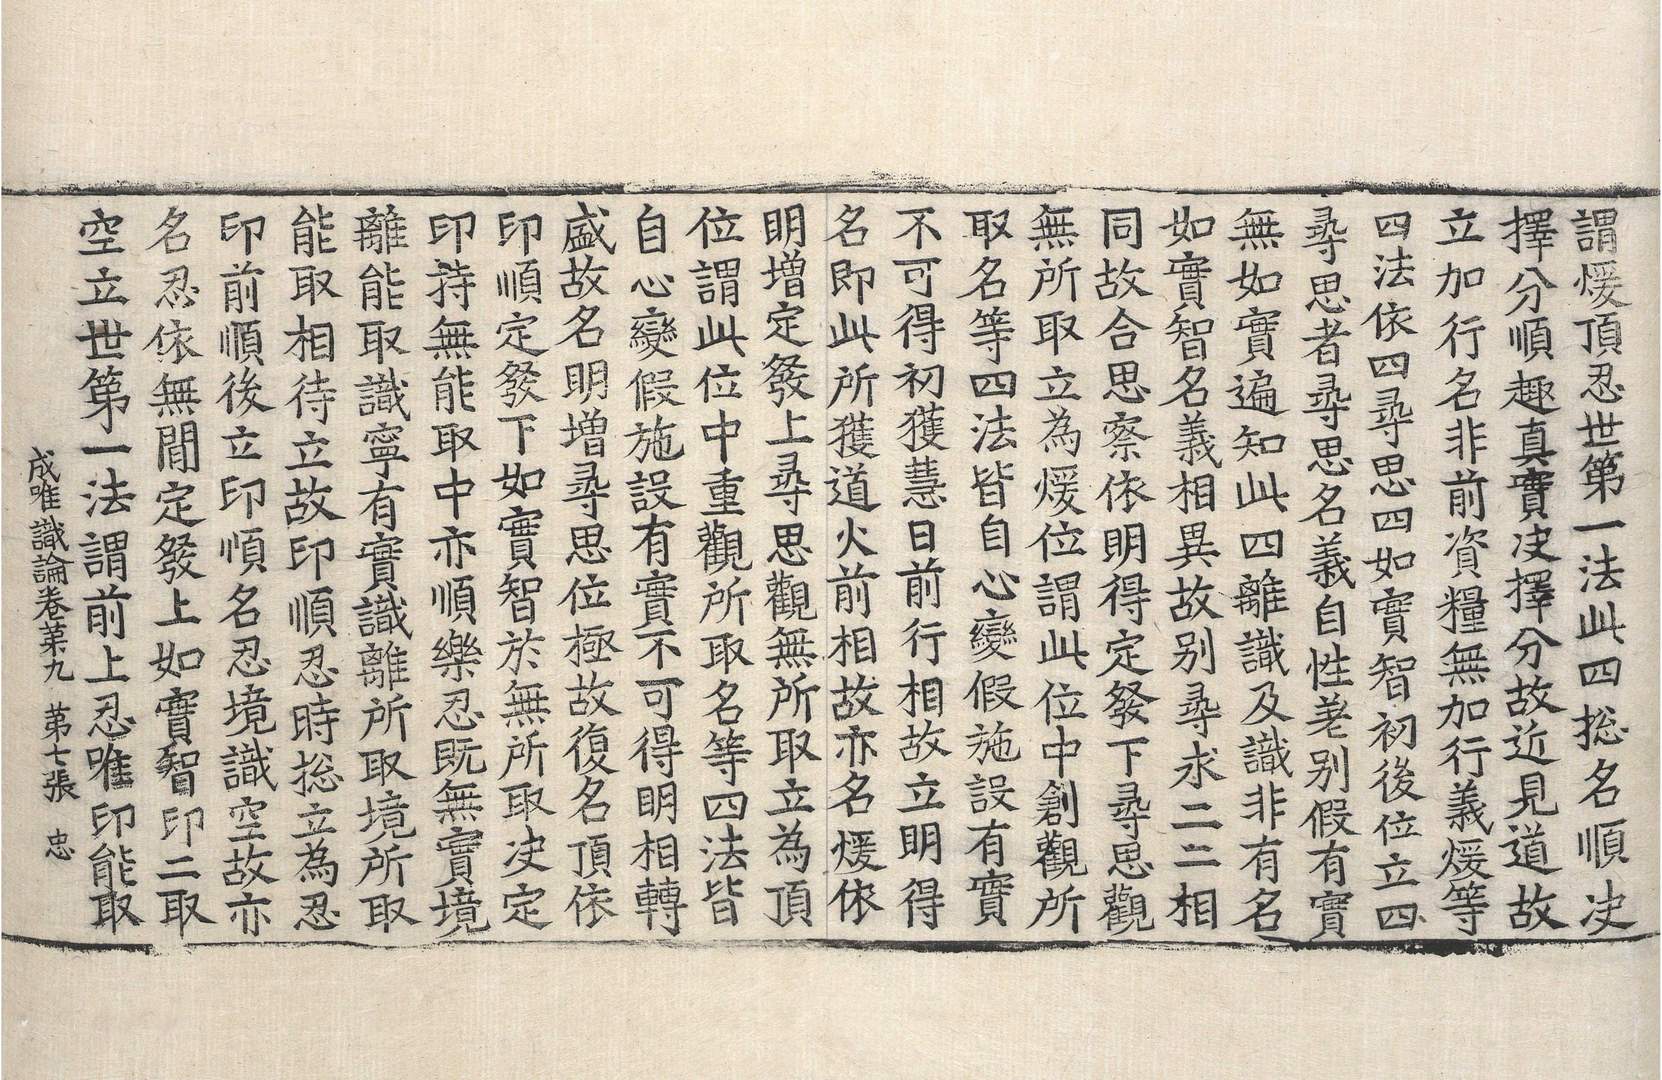 謂煖頂忍世第一法此四捴名順决
擇分順趣真實决擇分故近見道故
立加行名非前資糧無加行義煖等
四法依四尋思四如實智初後位立四
尋思者尋思名義自性差别假有實
無如實遍知此四離識及識非有名
如實智名義相異故别尋求二二相
同故合思察依明得定發下尋思觀
無所取立為煖位謂此位中創觀所
取名等四法皆自心變假施設有實
不可得初獲慧日前行相故立明得
名即此所獲道火前相故亦名煖依
明增定發上尋思觀無所取立為頂
位謂此位中重觀所取名等四法皆
自心變假施設有實不可得明相轉
盛故名明增尋思位極故復名頂依
印順定發下如實智於無所取决定
印持無能取中亦順樂忍既無實境
離能取識寧有實識離所取境所取
能取相待立故印順忍時捴立為忍
印前順後立印順名忍境識空故亦
名忍依無間定發上如實智印二取
空立世第一法謂前上忍唯印能取
成唯識論卷第九　第七張　忠